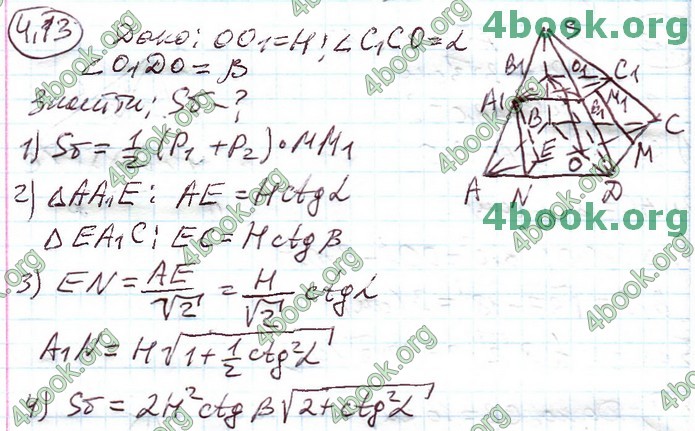 4.13
Дано: OO₁=H; ∠C₁CO=α
∠O₁DO=β
Знайти: Sб-?
1) Sб = 1/2 (P₁+P₂)•MM₁
2) ΔAA₁E: AE=Hctgα
ΔEA₁C: EC=Hctgβ
3) EN = AE/√2 = H/√2 ctgα
A₁N = H√(1+1/2 ctg²α)
4) Sб = 2H²ctgβ√(2+ctg²α)
S
B₁ O₁ C₁
A₁ M₁
B C
E O M
A N D
4book.org
4book.org
4book.org
4book.org
4book.org
4book.org
4book.org
4book.org
4book.org
4book.org